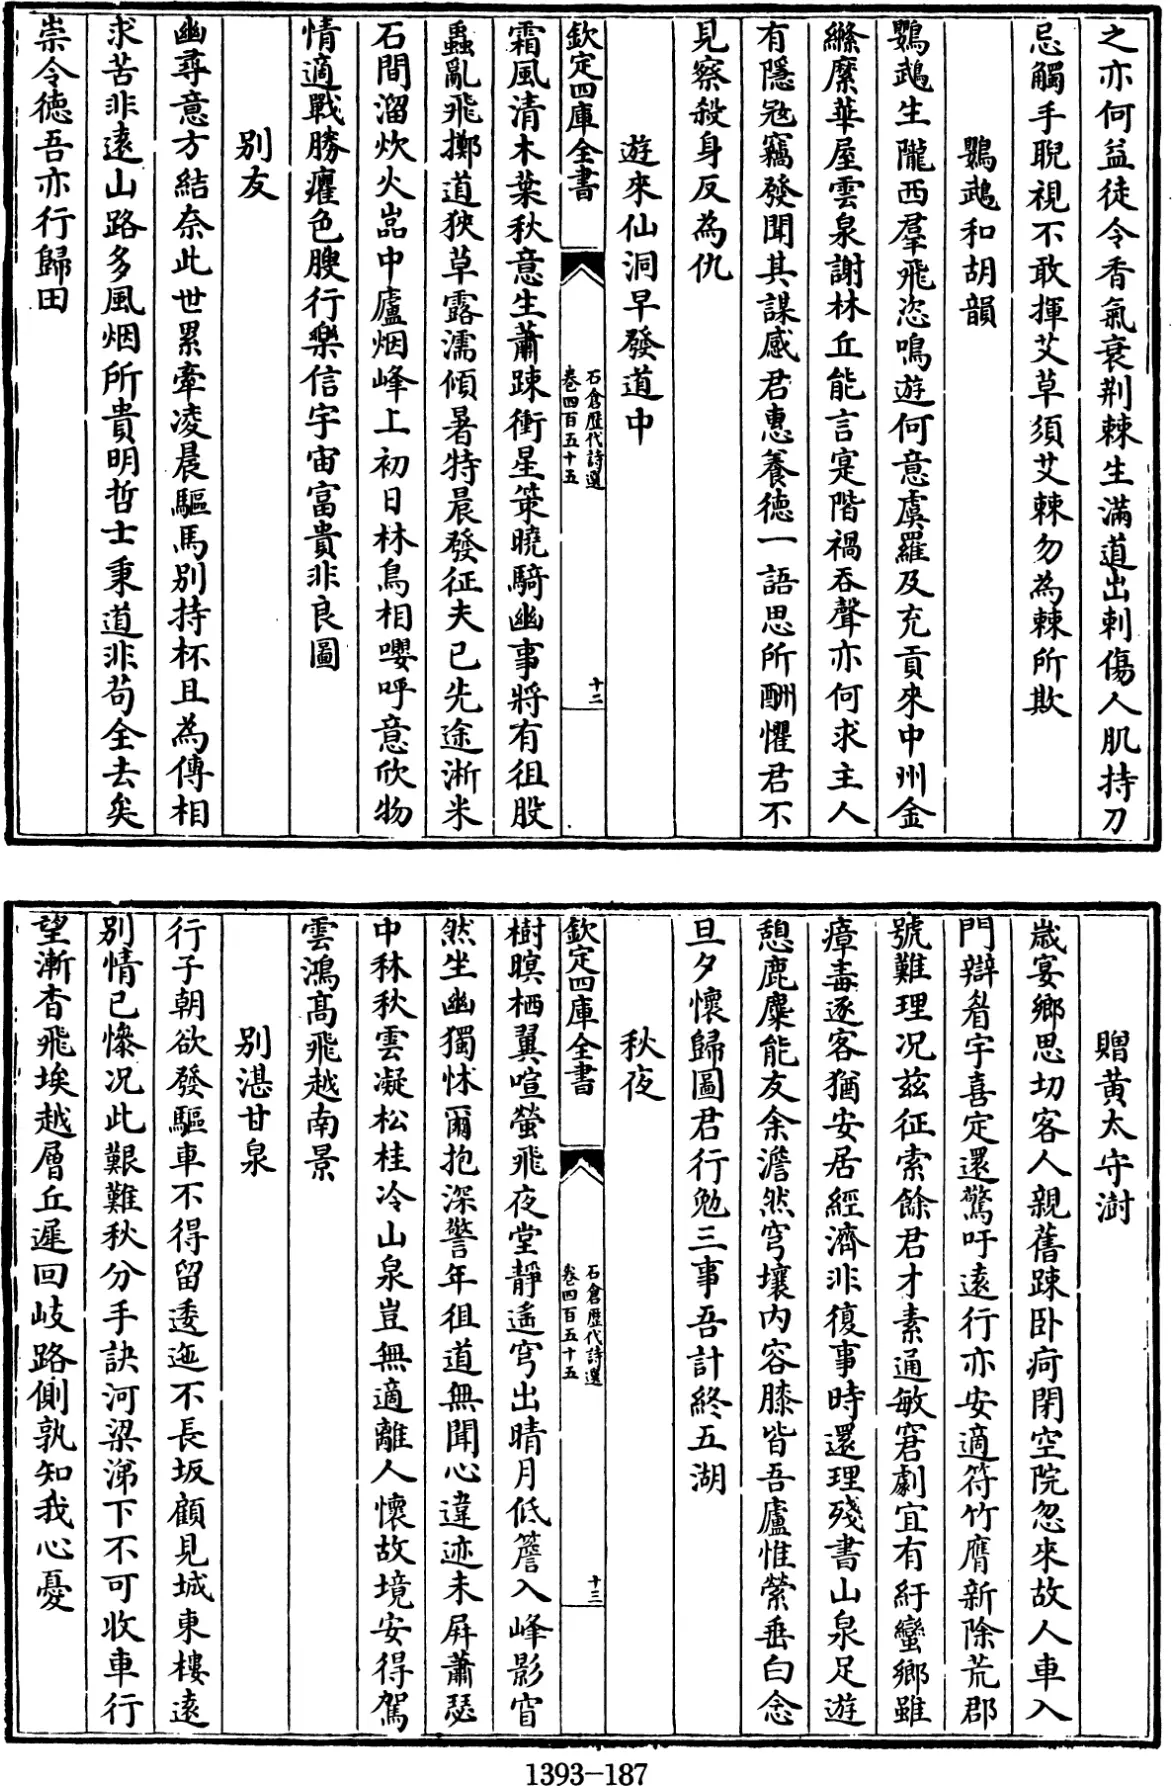 之亦何益徒令香氣衰荆棘生滿道出刺傷人肌持刀
忌觸手睨視不敢揮艾草須艾棘勿為棘所欺
鸚鵡和胡韻
鸚鵡生隴西羣飛恣鳴遊何意虞羅及充貢來中州金
絛縻華屋雲泉謝林丘能言寔階禍吞聲亦何求主人
有隱冦竊發聞其謀感君惠養德一語思所酬懼君不
見察殺身反為仇
遊來仙洞早發道中
欽定四庫全書
石倉歷代詩選
卷四百五十五
十二
霜風清木葉秋意生蕭踈衝星策曉騎幽事將有徂股
蟲亂飛擲道狹草露濡傾暑特晨發征夫已先途淅米
石間溜炊火嵓中廬烟峰上初日林鳥相嚶呼意欣物
情適戰勝癯色腴行樂信宇宙富貴非良圖
别友
幽尋意方結奈此世累牽凌晨驅馬别持杯且為傳相
求苦非逺山路多風烟所貴明哲士秉道非苟全去矣
崇令徳吾亦行歸田
贈黄太守澍
歲宴鄉思切客人親舊踈卧疴閉空院忽來故人車入
門辯眉宇喜定還驚吁逺行亦安適符竹膺新除荒郡
號難理况兹征索餘君才素通敏窘劇宜有紆蠻鄉雖
瘴毒逐客猶安居經濟非復事時還理殘書山泉足遊
憩鹿麋能友余澹然穹壤内容膝皆吾廬惟縈垂白念
旦夕懷歸圖君行勉三事吾計終五湖
秋夜
欽定四庫全書
石倉歷代詩選
卷四百五十五
十三
樹暝栖翼喧螢飛夜堂靜遥穹出晴月低簷入峰影窅
然坐幽獨怵爾抱深警年徂道無聞心違迹未屏蕭瑟
中秋雲凝松桂冷山泉豈無適離人懷故境安得駕
雲鴻髙飛越南景
别湛甘泉
行子朝欲發驅車不得留逶迤不長坂顧見城東樓逺
别情已慘况此艱難秋分手訣河梁涕下不可收車行
望漸杳飛埃越層丘遲回岐路側孰知我心憂
1393-187